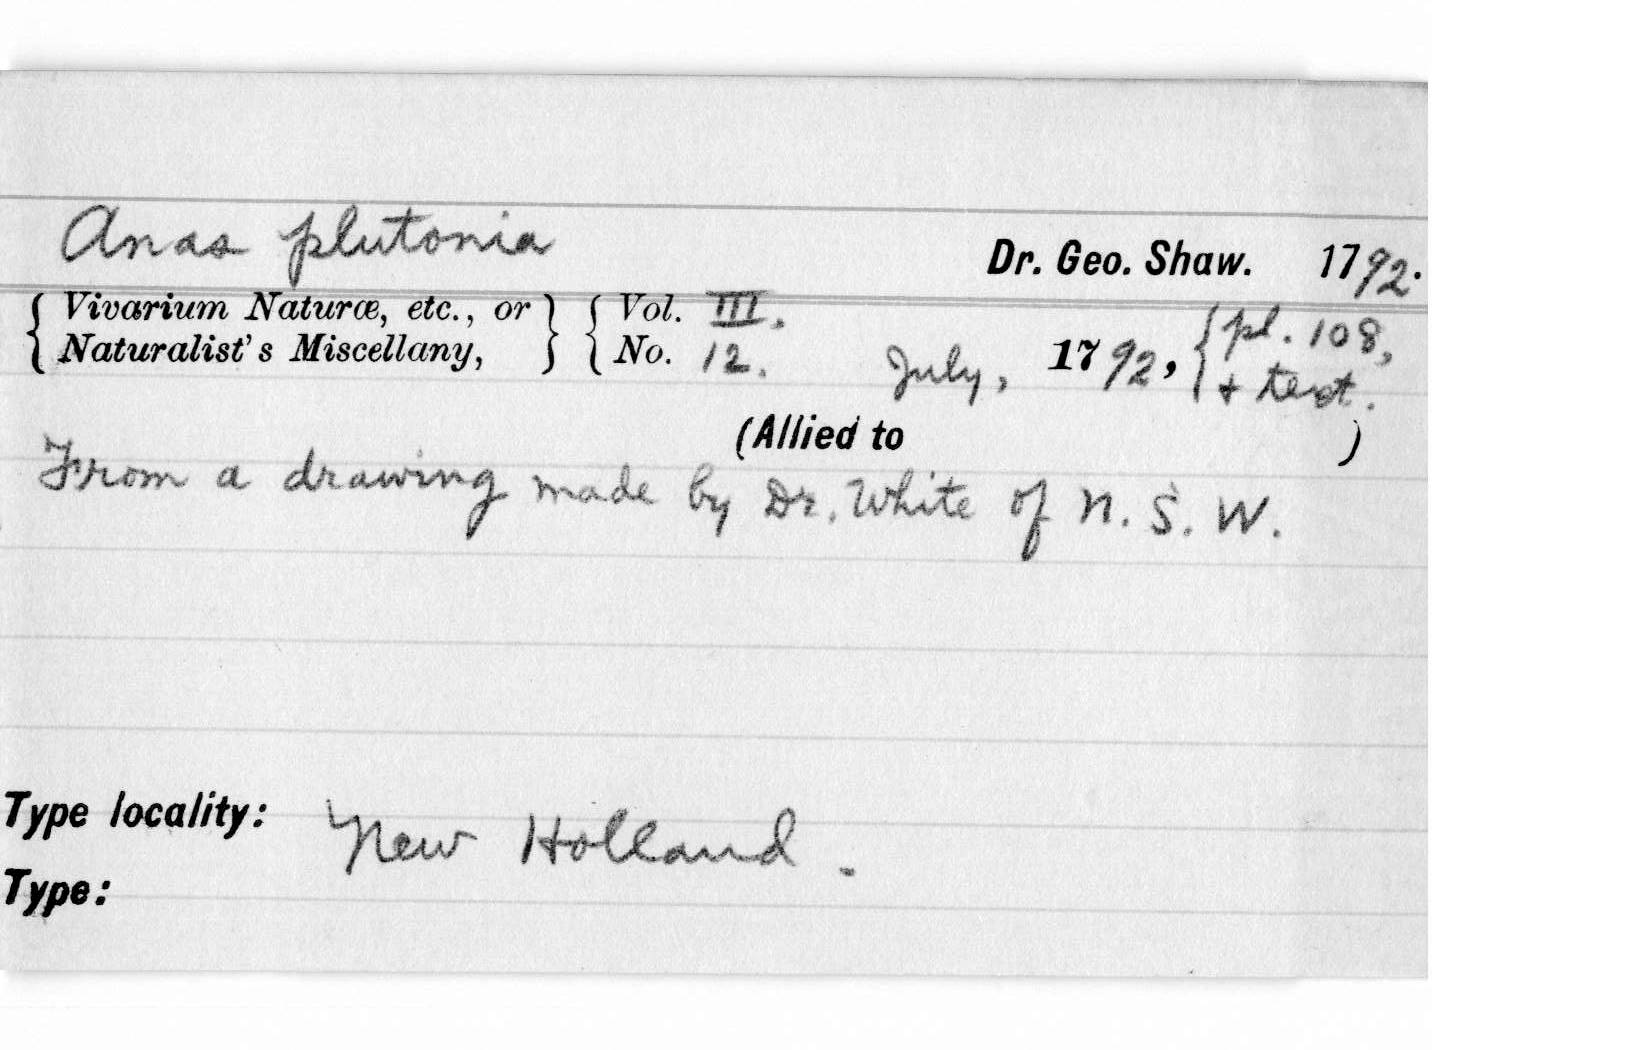 Anas plutonia
Dr. Geo. Shaw. 1792.
{ Vivarium Naturæ, etc., or } { Vol. III.
{ Naturalist's Miscellany, } { No. 12. July, 1792, { pl. 108, + text.
(Allied to )
From a drawing made by Dr. White of N. S. W.
Type locality: New Holland.
Type: